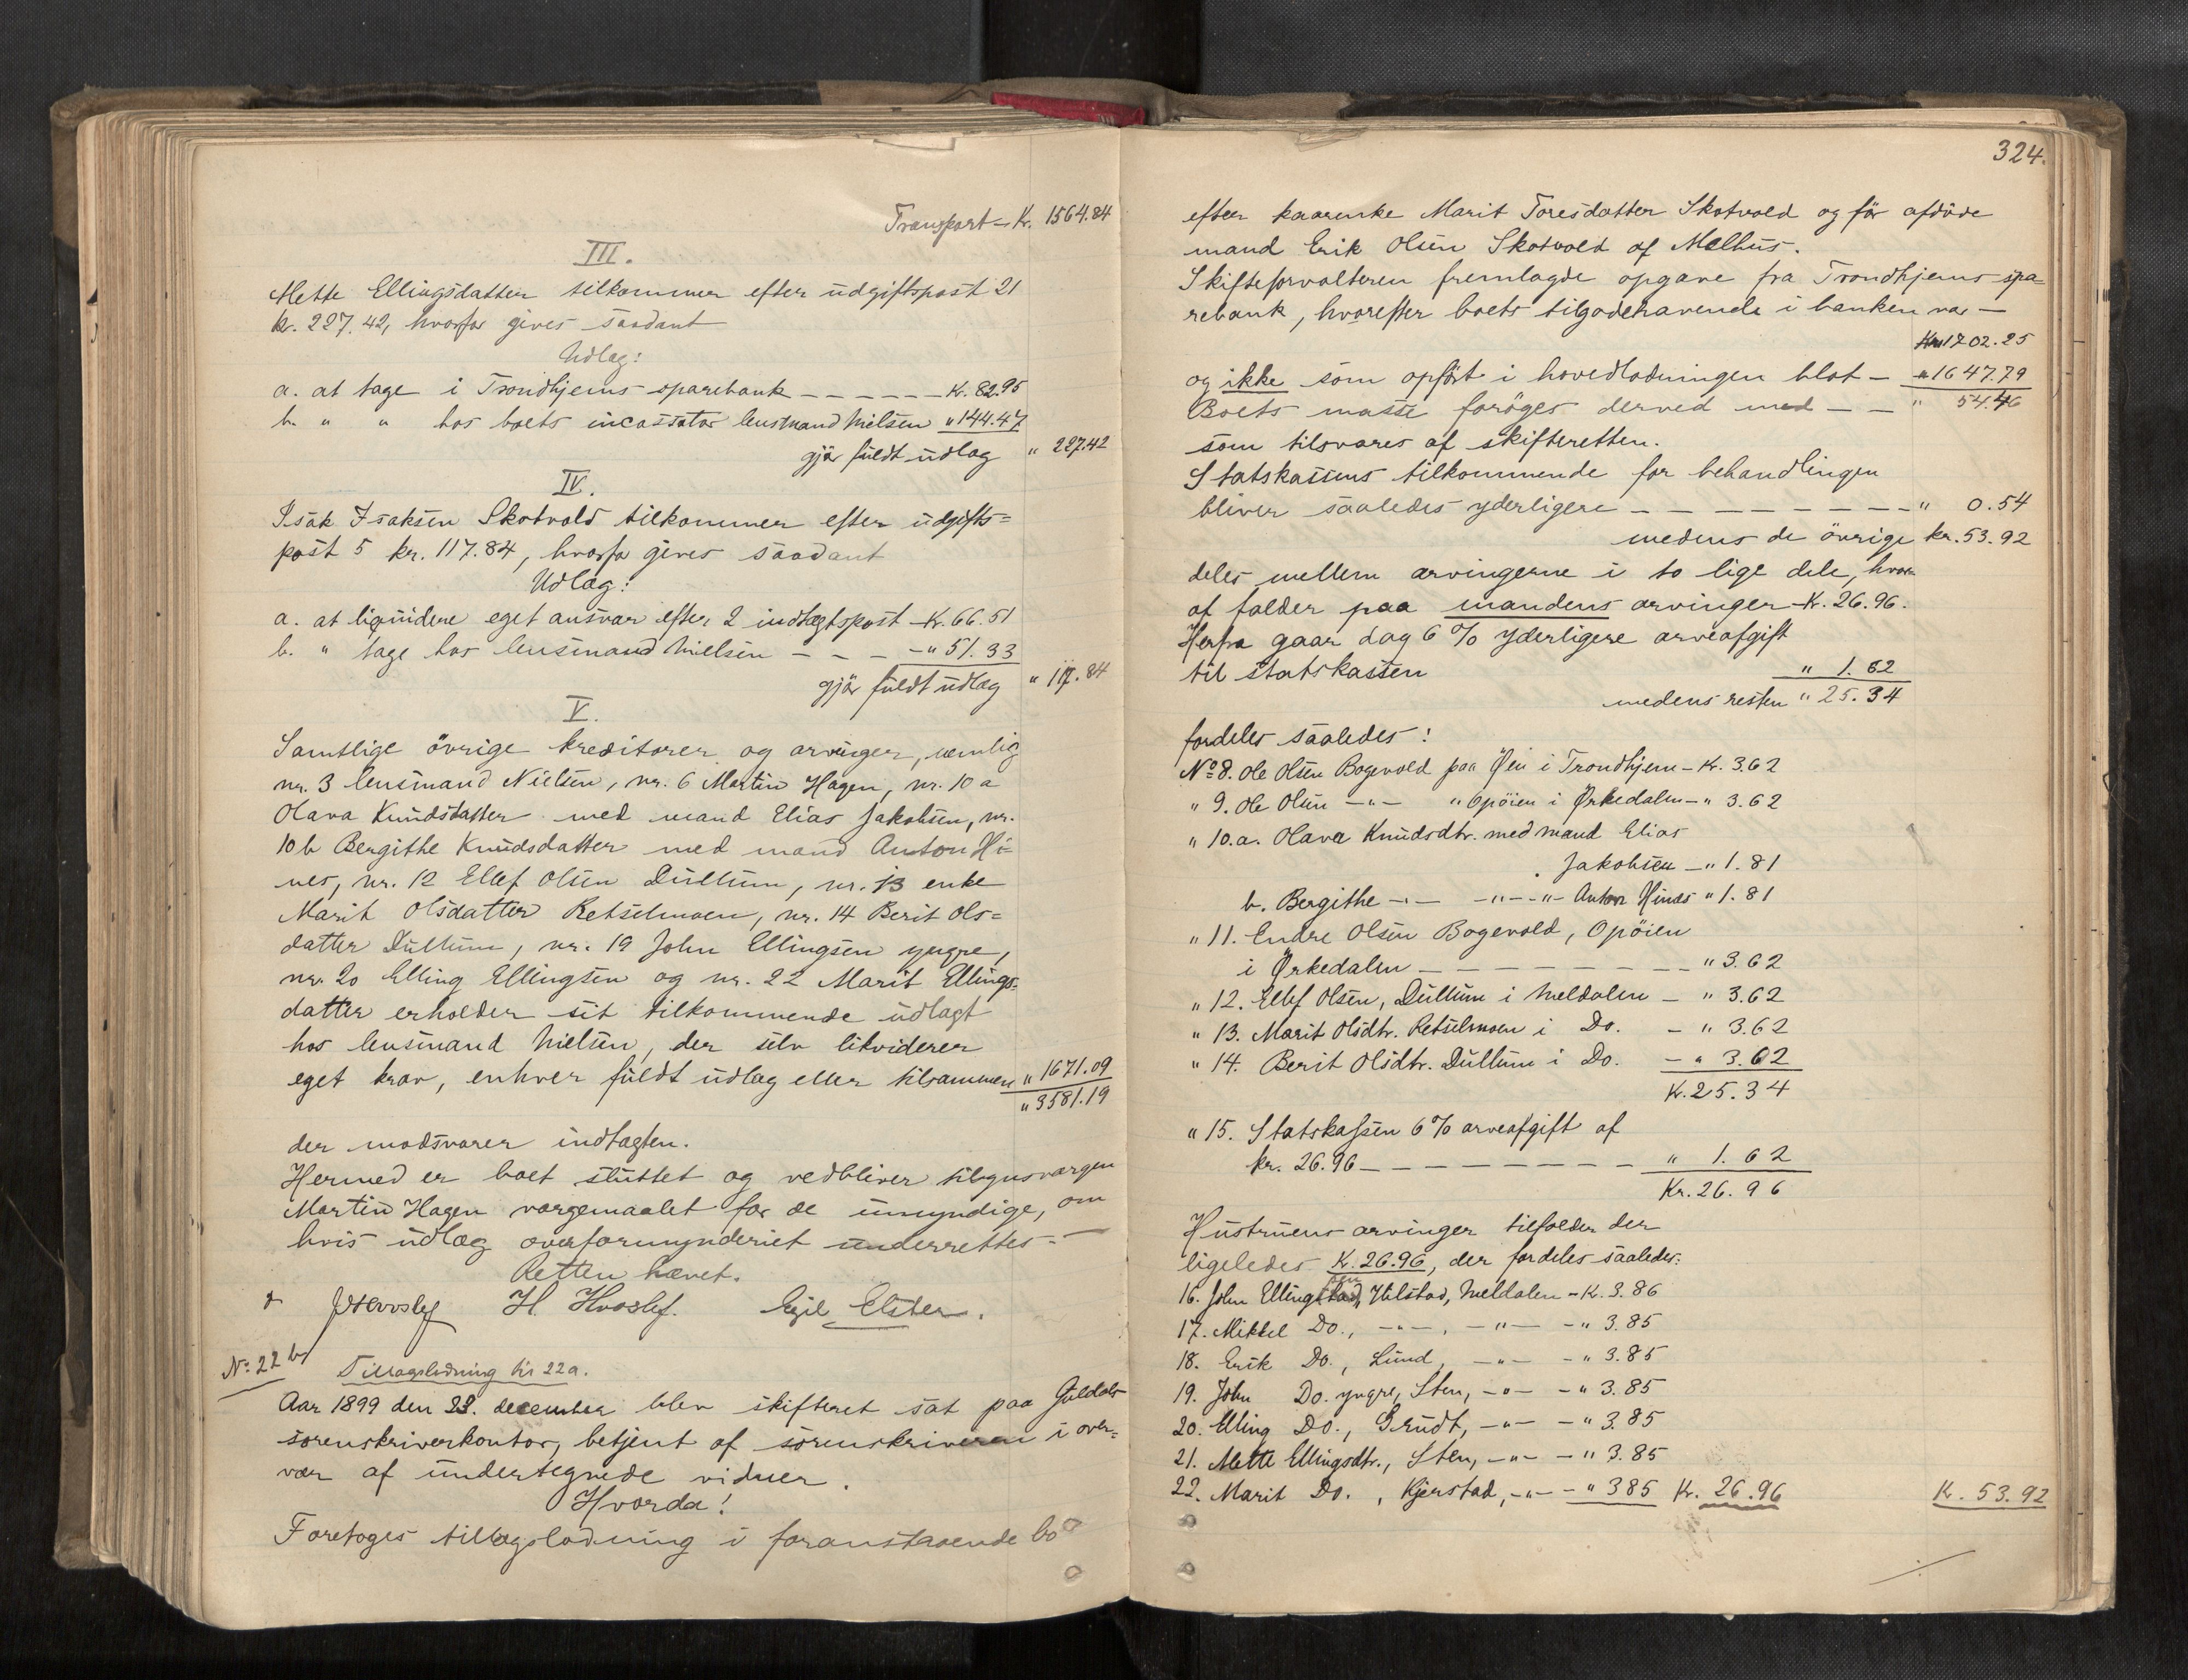 Transport – Kr. 1564.84
III.
Mette Ellingsdatter tilkommer efter udgiftspost 21
kr. 227.42, hvorfor gives saadant
Udlæg:
a. at tage i Trondhjems sparebank – – – – – – Kr. 82.95
b. " " hos boets incassator lensmand Nielsen " 144.47
gjør fuldt udlæg " 227.42
IV.
Isak Isaksen Skotvold tilkommer efter udgifts=
post 5 kr. 117.84, hvorfor gives saadant
Udlæg:
a. at liqvidere eget ansvar efter 2 indtægtspost – Kr. 66.51
b. " tage hos lensmand Nielsen – – – – " 51.33
gjør fuldt udlæg " 117.84
V.
Samtlige øvrige kreditorer og arvinger, nemlig
nr. 3 lensmand Nielsen, nr. 6 Martin Hagen, nr. 10 a
Olava Knudsdatter med mand Elias Jakobsen, nr.
10 b Bergithe Knudsdatter med mand Anton Hi=
nes, nr. 12 Ellef Olsen Dullum, nr. 13 enke
Marit Olsdatter Retselmoen, nr. 14 Berit Ols=
datter Dullum, nr. 19 John Ellingsen yngre,
nr. 20 Elling Ellingsen og nr. 22 Marit Ellings=
datter erholder sit tilkommende udlagt
hos lensmand Nielsen, der selv likviderer
eget krav, enhver fuldt udlæg eller tilsammen " 1671.09
" 3581.19
der modsvarer indtægten.
Hermed er boet sluttet og vedbliver tilsynsværgen
Martin Hagen værgemaalet for de umyndige, om
hvis udlæg overformynderiet underrettes. –
Retten hævet.
H. Hvoslef. Egil Elster.
No 22 b Tillægslodning til 22a.
Aar 1899 den 23. december blev skifteret sat paa Guldals
sorenskriverkontor, betjent af sorenskriveren i over=
vær af undertegnede vidner.
Hvorda!
Foretoges tillægslodning i foranstaaende bo
324.
efter kaarenke Marit Toresdatter Skotvold og før afdøde
mand Erik Olsen Skotvold af Melhus.
Skifteforvalteren fremlagde opgave fra Trondhjems spa=
rebank, hvorefter boets tilgodehavende i banken var –
Kr. 1702.25
og ikke som opført i hovedlodningen blot – " 1647.79
Boets masse forøges derved med – – " 54.46
som tilsvares af skifteretten.
Statskassens tilkommende for behandlingen
bliver saaledes yderligere – – – – – – – – – " 0.54
medens de øvrige kr. 53.92
deles mellem arvingerne i to lige dele, hvor=
af falder paa mandens arvinger – Kr. 26.96.
Herfra gaar dog 6 % yderligere arveafgift
til statskassen " 1.62
medens resten " 25.34
fordeles saaledes:
No 8. Ole Olsen Bogevold paa Øen i Trondhjem – Kr. 3.62
" 9. Ole Olsen – " – " Opøien i Ørkedalen – " 3.62
" 10. a. Olava Knudsdtr. med mand Elias
Jakobsen – " 1.81
b. Bergithe – " – – " – – " – Anton Hines " 1.81
" 11. Endre Olsen Bogevold, Opøien
i Ørkedalen – – – – – – – – – " 3.62
" 12. Ellef Olsen, Dullum i Meldalen – " 3.62
" 13. Marit Olsdtr. Retselmoen i Do. – " 3.62
" 14. Berit Olsdtr. Dullum i Do. – " 3.62
Kr. 25.34
" 15. Statskassen 6 % arveafgift af
kr. 26.96 – – – – – – – – – " 1.62
Kr. 26.96
Hustruens arvinger tilfalder der
ligeledes Kr. 26.96, der fordeles saaledes:
16. John Ellingsen, Hilstad, Meldalen – K. 3.86
17. Mikkel Do., – " – , – " – – " 3.85
18. Erik Do., Lund, – " – – " 3.85
19. John Do. yngre, Sten, – " – – " 3.85
20. Elling Do., Grudt, – " – – " 3.85
21. Mette Ellingsdtr., Sten, – " – – " 3.85
22. Marit Do., Kjerstad, – " – – " 385 Kr. 26.96 K. 53.92